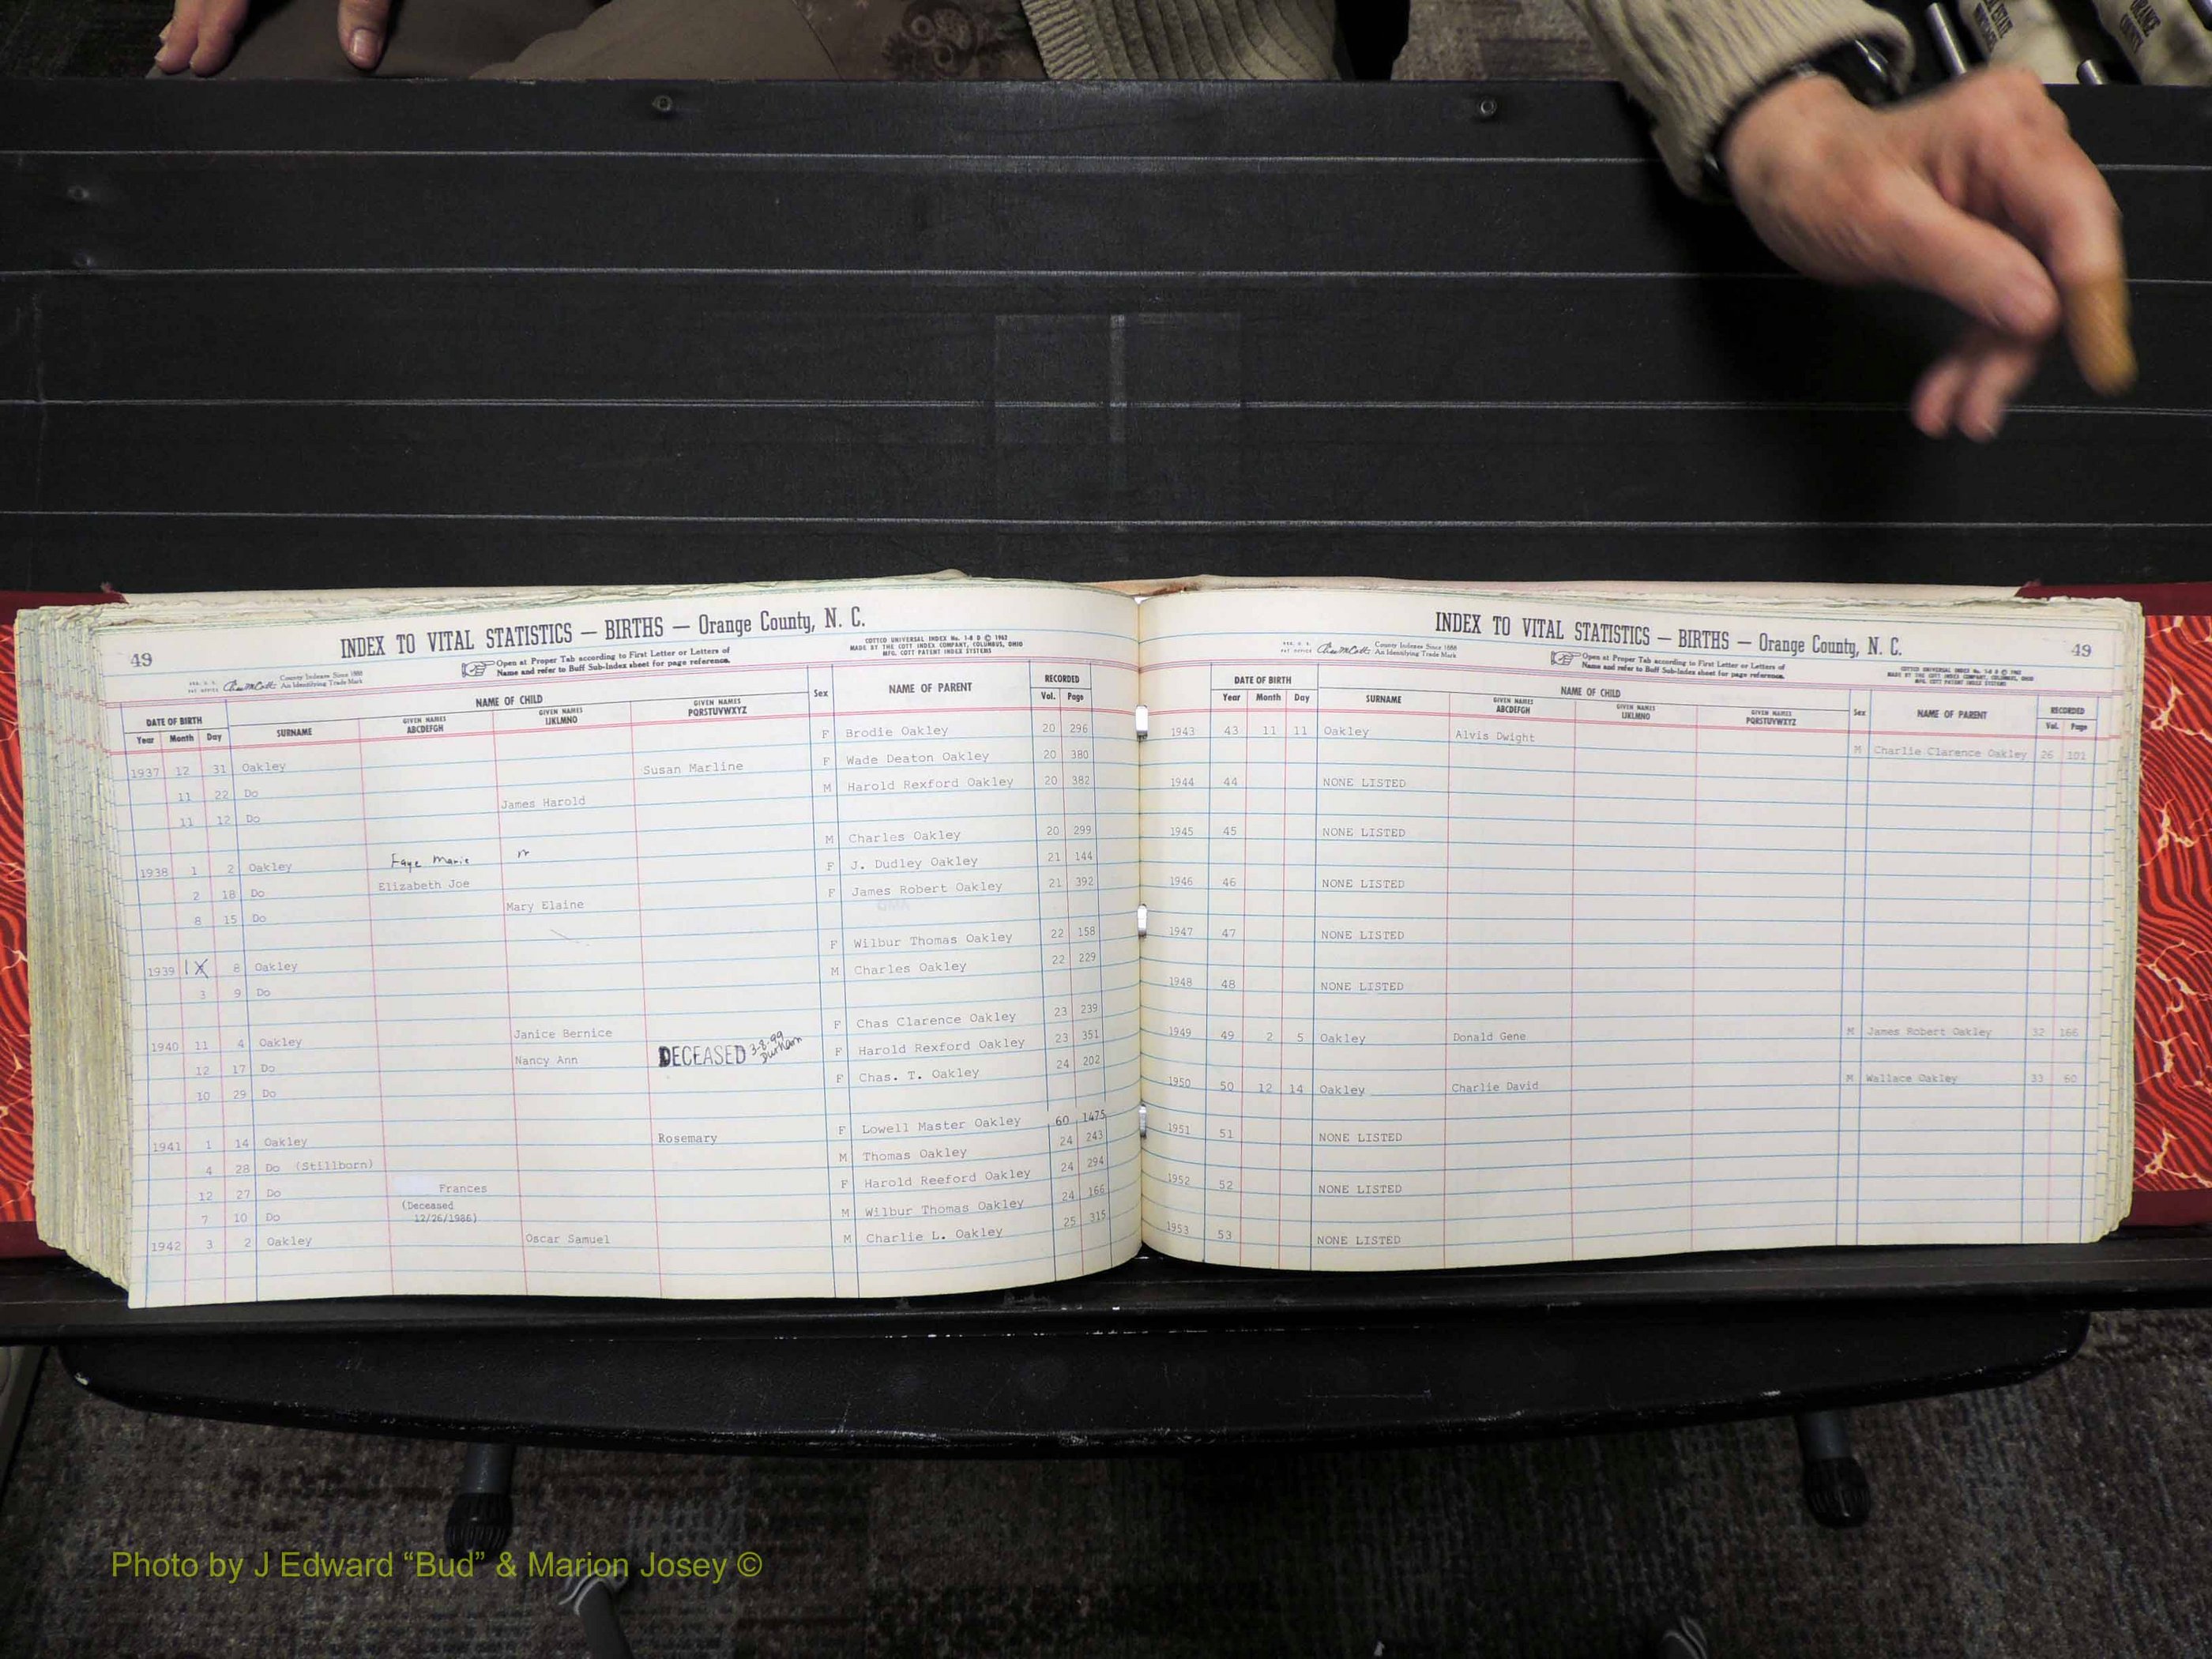 ORANGE
COUNTY
49
INDEX TO VITAL STATISTICS — BIRTHS — Orange County, N. C.
COTTCO UNIVERSAL INDEX No. 1-8 D © 1962
MADE BY THE COTT INDEX COMPANY, COLUMBUS, OHIO
MFG. COTT PATENT INDEX SYSTEMS
County Indexes Since 1888
An Identifying Trade Mark
Open at Proper Tab according to First Letter or Letters of
Name and refer to Buff Sub-Index sheet for page reference.
DATE OF BIRTH NAME OF CHILD Sex NAME OF PARENT RECORDED
Year Month Day SURNAME GIVEN NAMES ABCDEFGH GIVEN NAMES IJKLMNO GIVEN NAMES PQRSTUVWXYZ Vol. Page
1937 12 31 Oakley F Brodie Oakley 20 296
11 22 Do Susan Marline F Wade Deaton Oakley 20 380
11 12 Do James Harold M Harold Rexford Oakley 20 382
1938 1 2 Oakley M Charles Oakley 20 299
2 18 Do Faye Marie F J. Dudley Oakley 21 144
8 15 Do Elizabeth Joe Mary Elaine F James Robert Oakley 21 392
1939 1X 8 Oakley F Wilbur Thomas Oakley 22 158
3 9 Do M Charles Oakley 22 229
1940 11 4 Oakley Janice Bernice F Chas Clarence Oakley 23 239
12 17 Do Nancy Ann DECEASED 3-8-99 Durham F Harold Rexford Oakley 23 351
10 29 Do F Chas. T. Oakley 24 202
1941 1 14 Oakley Rosemary F Lowell Master Oakley 60 1475
4 28 Do (Stillborn) M Thomas Oakley 24 243
12 27 Do Frances F Harold Reeford Oakley 24 294
7 10 Do (Deceased 12/26/1986) M Wilbur Thomas Oakley 24 166
1942 3 2 Oakley Oscar Samuel M Charlie L. Oakley 25 315
INDEX TO VITAL STATISTICS — BIRTHS — Orange County, N. C.
49
County Indexes Since 1888
An Identifying Trade Mark
Open at Proper Tab according to First Letter or Letters of
Name and refer to Buff Sub-Index sheet for page reference.
COTTCO UNIVERSAL INDEX No. 1-8 D © 1962
MADE BY THE COTT INDEX COMPANY, COLUMBUS, OHIO
MFG. COTT PATENT INDEX SYSTEMS
DATE OF BIRTH NAME OF CHILD Sex NAME OF PARENT RECORDED
Year Month Day SURNAME GIVEN NAMES ABCDEFGH GIVEN NAMES IJKLMNO GIVEN NAMES PQRSTUVWXYZ Vol. Page
1943 43 11 11 Oakley Alvis Dwight M Charlie Clarence Oakley 26 101
1944 44 NONE LISTED
1945 45 NONE LISTED
1946 46 NONE LISTED
1947 47 NONE LISTED
1948 48 NONE LISTED
1949 49 2 5 Oakley Donald Gene M James Robert Oakley 32 166
1950 50 12 14 Oakley Charlie David M Wallace Oakley 33 60
1951 51 NONE LISTED
1952 52 NONE LISTED
1953 53 NONE LISTED
Photo by J Edward “Bud” & Marion Josey ©